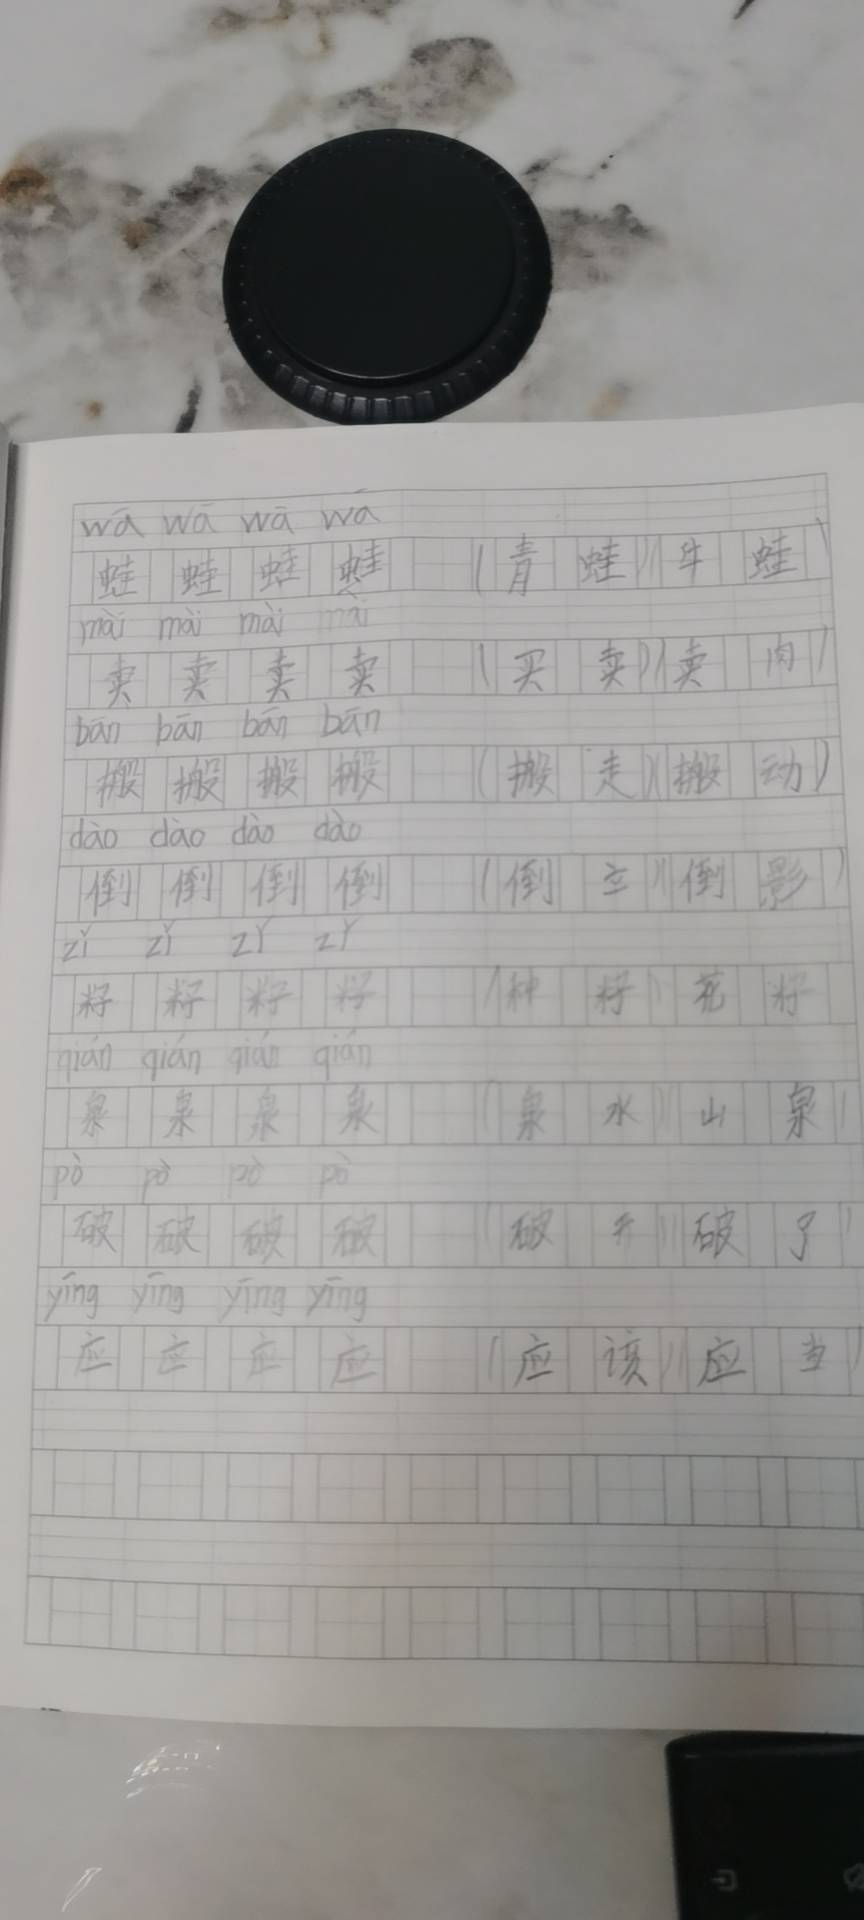 wā wā wā wā
蛙 蛙 蛙 蛙 (青蛙)(牛蛙)
mài mài mài mài
卖 卖 卖 卖 (买卖)(卖肉)
bān bān bān bān
搬 搬 搬 搬 (搬走)(搬动)
dào dào dào dào
倒 倒 倒 倒 (倒立)(倒影)
zǐ zǐ zǐ zǐ
籽 籽 籽 籽 (种籽) 花籽
qián qián qián qián
泉 泉 泉 泉 (泉水)(山泉)
pò pò pò pò
破 破 破 破 (破开)(破了)
yīng yīng yīng yīng
应 应 应 应 (应该)(应当)